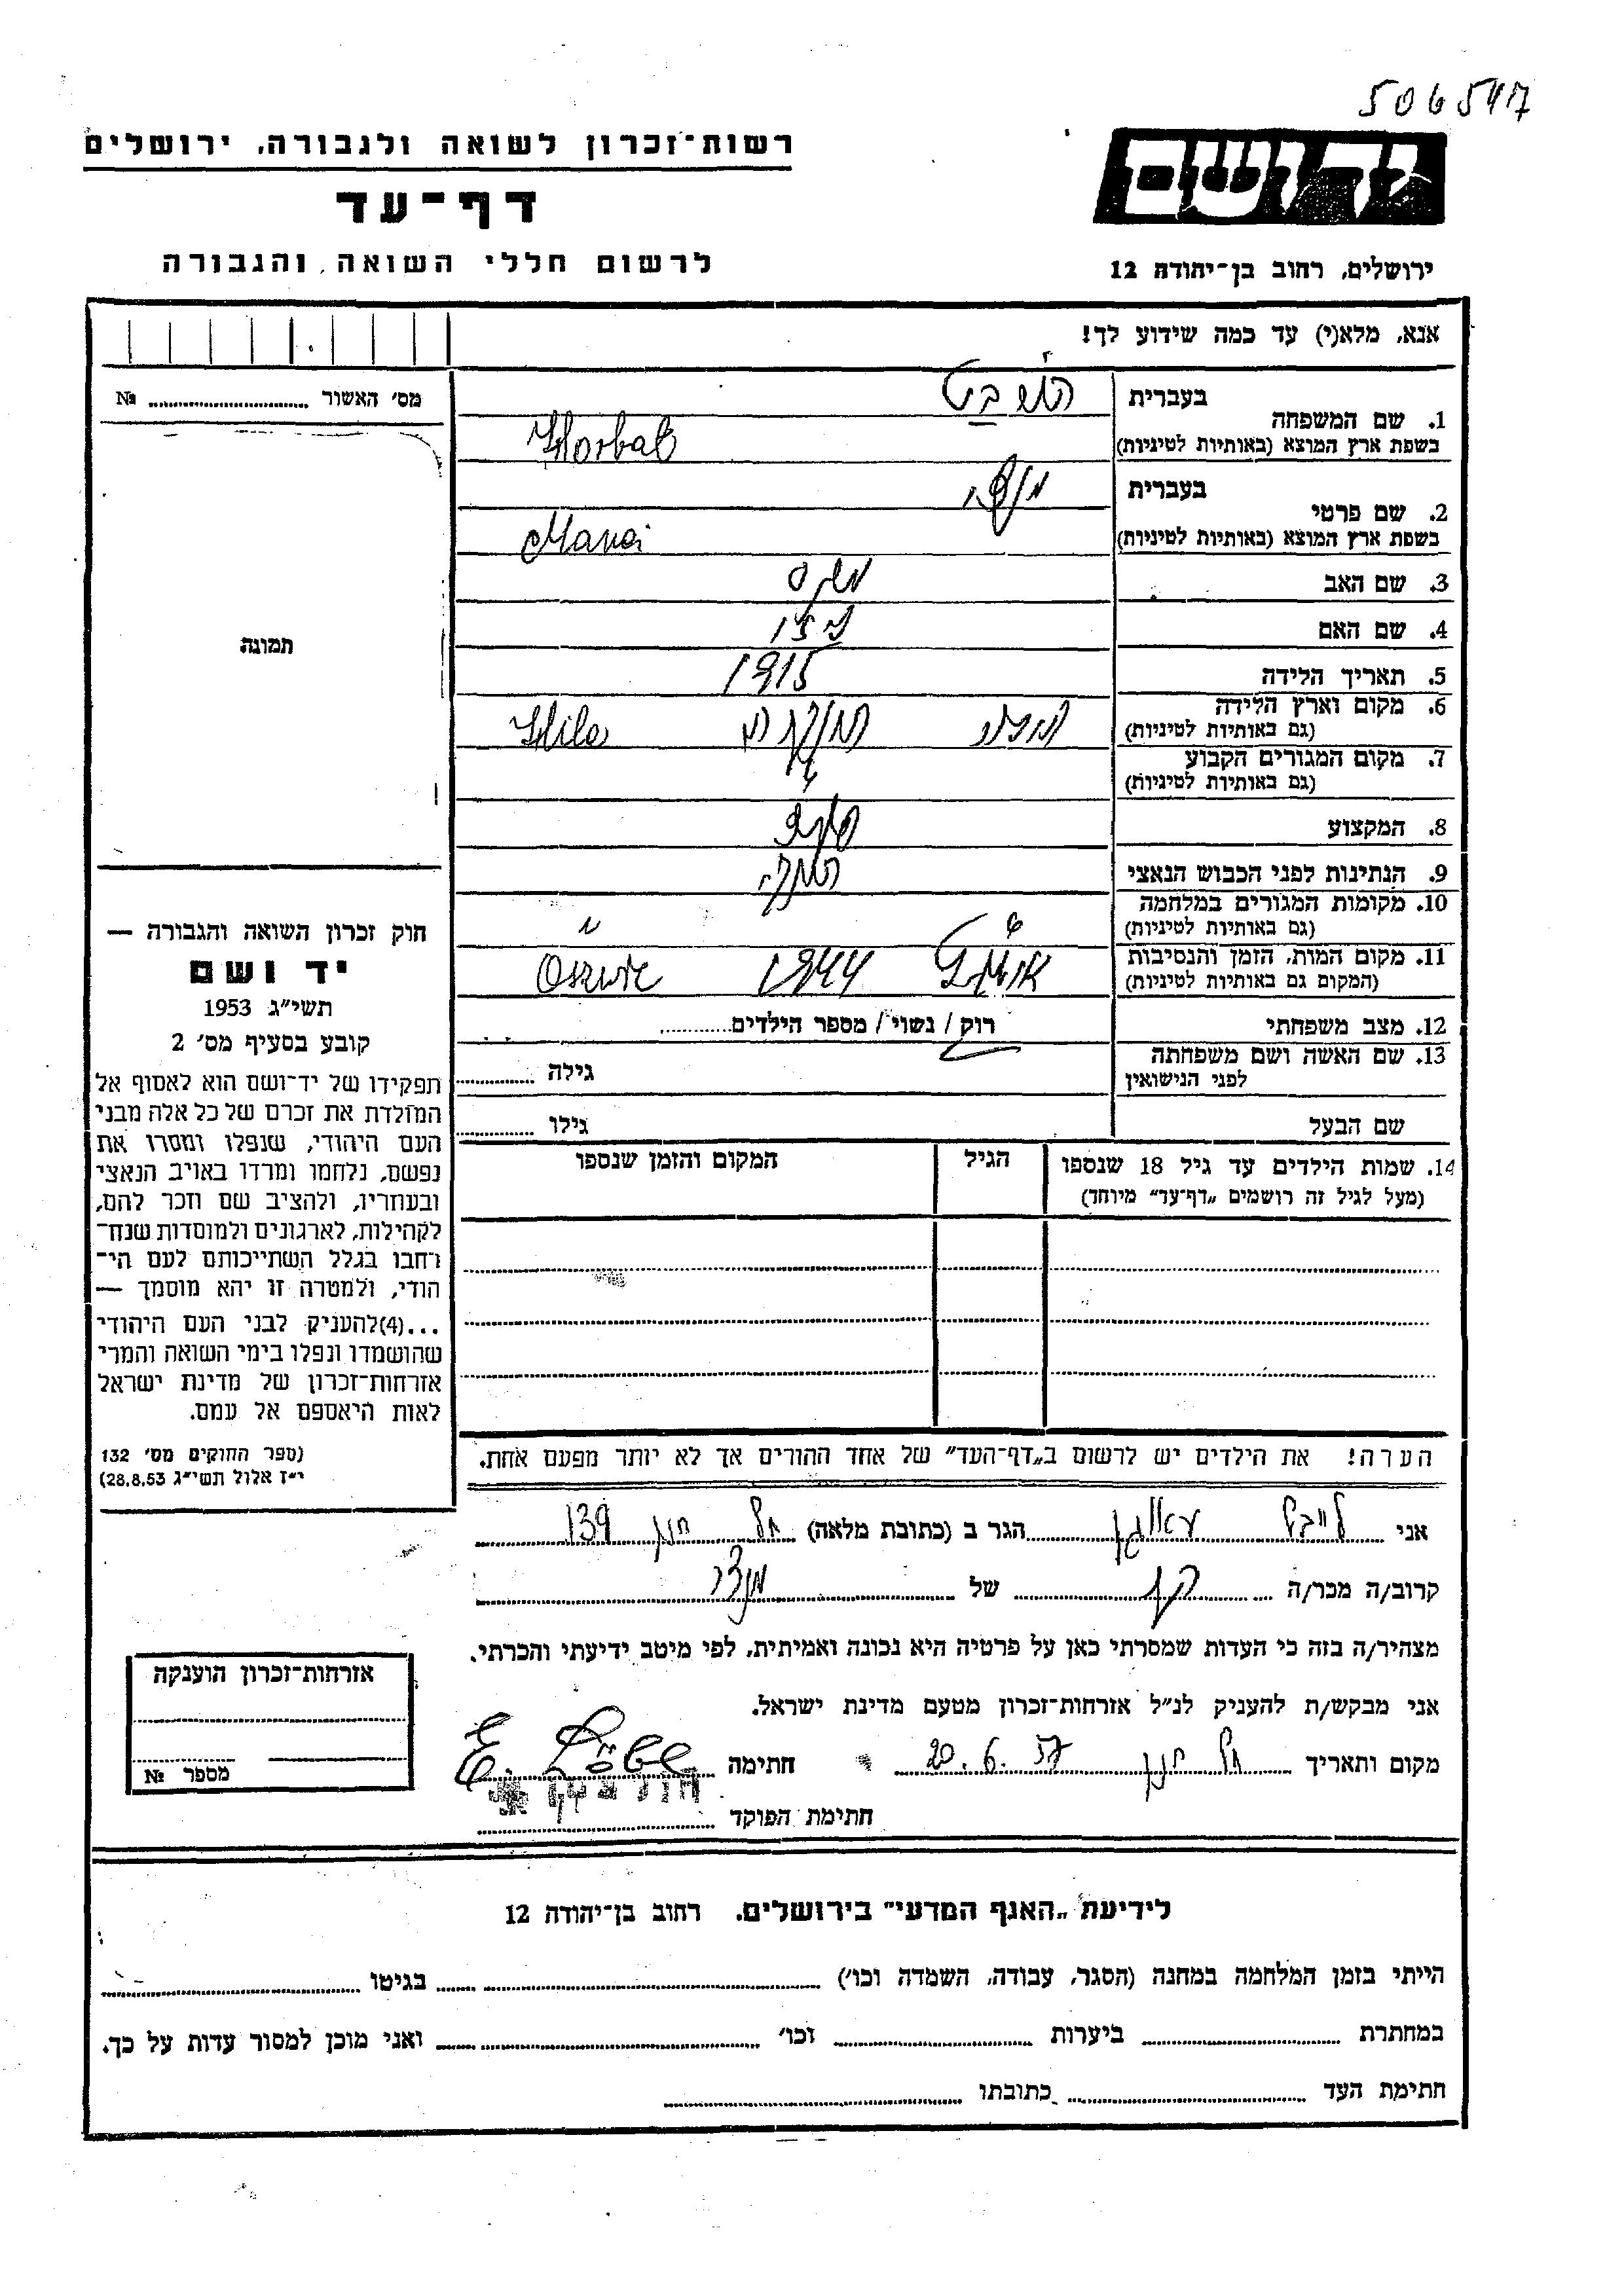 506547
יד ושם
רשות־זכרון לשואה ולגבורה, ירושלים
דף־עד
לרשום חללי השואה והגבורה
ירושלים, רחוב בן־יהודה 12
אנא, מלא(י) עד כמה שידוע לך!
מס׳ האשור №
תמונה
1. שם המשפחה
בעברית
בשפת ארץ המוצא (באותיות לטיניות) Horbat
2. שם פרטי
בעברית
בשפת ארץ המוצא (באותיות לטיניות)
3. שם האב
4. שם האם
5. תאריך הלידה 1915
6. מקום וארץ הלידה
(גם באותיות לטיניות)
7. מקום המגורים הקבוע
(גם באותיות לטיניות)
8. המקצוע
9. הנתינות לפני הכבוש הנאצי
10. מקומות המגורים במלחמה
(גם באותיות לטיניות)
11. מקום המות, הזמן והנסיבות 1944
(המקום גם באותיות לטיניות)
12. מצב משפחתי רוק / נשוי / מספר הילדים
13. שם האשה ושם משפחתה
לפני הנישואין גילה
שם הבעל גילו
14. שמות הילדים עד גיל 18 שנספו הגיל המקום והזמן שנספו
(מעל לגיל זה רושמים „דף־עד״ מיוחד)
הערה! את הילדים יש לרשום ב„דף־העד״ של אחד ההורים אך לא יותר מפעם אחת.
חוק זכרון השואה והגבורה —
יד ושם
תשי״ג 1953
קובע בסעיף מס׳ 2
תפקידו של יד־ושם הוא לאסוף אל
המולדת את זכרם של כל אלה מבני
העם היהודי, שנפלו ומסרו את
נפשם, נלחמו ומרדו באויב הנאצי
ובעוזריו, ולהציב שם וזכר להם,
לקהילות, לארגונים ולמוסדות שנח־
רחבו בגלל השתייכותם לעם הי־
הודי, ולמטרה זו יהא מוסמך —
...(4)להעניק לבני העם היהודי
שהושמדו ונפלו בימי השואה והמרי
אזרחות־זכרון של מדינת ישראל
לאות היאספם אל עמם.
(ספר החוקים מס׳ 132
י״ז אלול תשי״ג 28.8.53)
אני הגר ב (כתובת מלאה) 139
קרוב/ה מכר/ה של
מצהיר/ה בזה כי העדות שמסרתי כאן על פרטיה היא נכונה ואמיתית, לפי מיטב ידיעתי והכרתי.
אני מבקש/ת להעניק לנ״ל אזרחות־זכרון מטעם מדינת ישראל.
מקום ותאריך 20.6.57 חתימה
חתימת הפוקד
אזרחות־זכרון הוענקה
מספר №
לידיעת „האגף המדעי״ בירושלים, רחוב בן־יהודה 12
הייתי בזמן המלחמה במחנה (הסגר, עבודה, השמדה וכו׳) בגיטו
במחתרת ביערות וכו׳ ואני מוכן למסור עדות על כך.
חתימת העד כתובתו